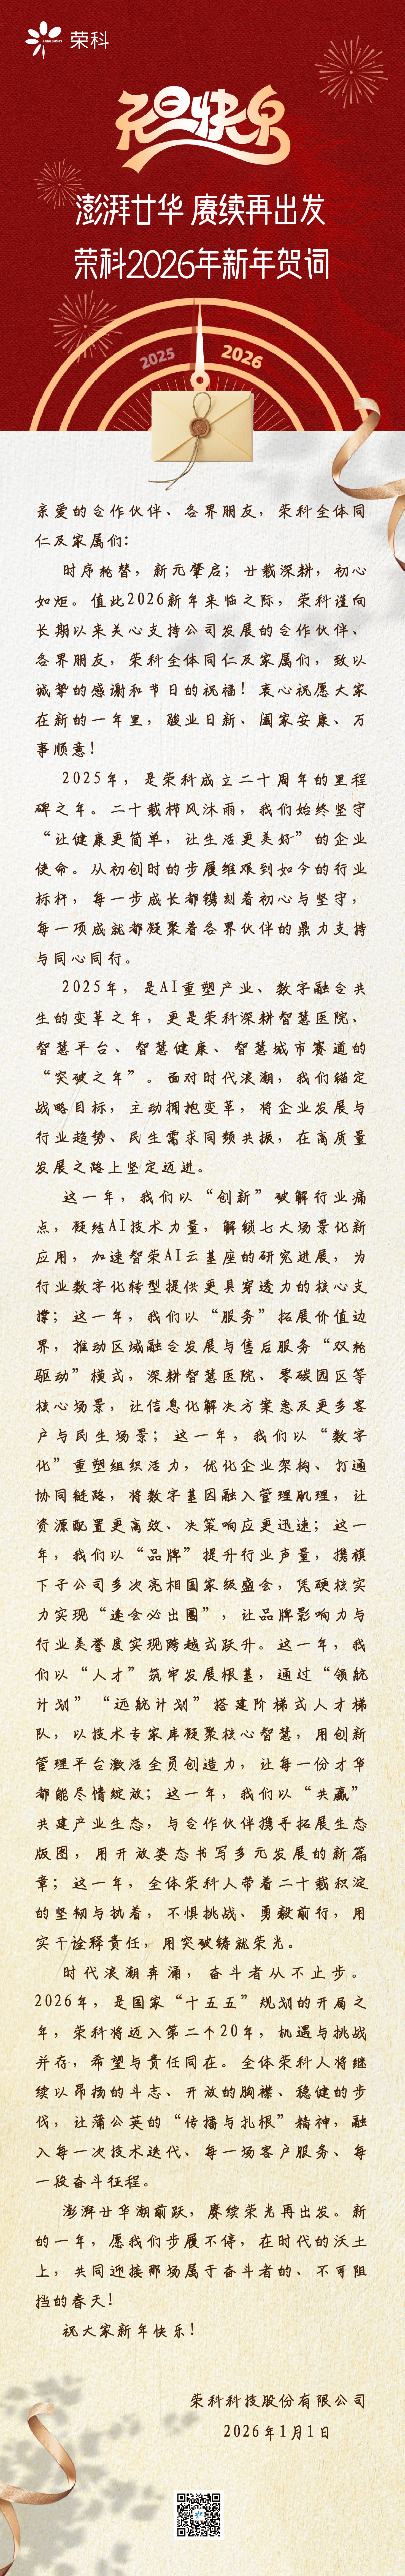 荣科
元旦快乐
澎湃廿华 赓续再出发
荣科2026年新年贺词
2025
2026
亲爱的合作伙伴、各界朋友，荣科全体同
仁及家属们：
时序轮替，新元肇启；廿载深耕，初心
如炬。值此2026新年来临之际，荣科谨向
长期以来关心支持公司发展的合作伙伴、
各界朋友，荣科全体同仁及家属们，致以
诚挚的感谢和节日的祝福！衷心祝愿大家
在新的一年里，骏业日新、阖家安康、万
事顺意！
2025年，是荣科成立二十周年的里程
碑之年。二十载栉风沐雨，我们始终坚守
“让健康更简单，让生活更美好”的企业
使命。从初创时的步履维艰到如今的行业
标杆，每一步成长都镌刻着初心与坚守，
每一项成就都凝聚着各界伙伴的鼎力支持
与同心同行。
2025年，是AI重塑产业、数字融合共
生的变革之年，更是荣科深耕智慧医院、
智慧平台、智慧健康、智慧城市赛道的
“突破之年”。面对时代浪潮，我们锚定
战略目标，主动拥抱变革，将企业发展与
行业趋势、民生需求同频共振，在高质量
发展之路上坚定迈进。
这一年，我们以“创新”破解行业痛
点，凝结AI技术力量，解锁七大场景化新
应用，加速智荣AI云基座的研究进展，为
行业数字化转型提供更具穿透力的核心支
撑；这一年，我们以“服务”拓展价值边
界，推动区域融合发展与售后服务“双轮
驱动”模式，深耕智慧医院、零碳园区等
核心场景，让信息化解决方案惠及更多客
户与民生场景；这一年，我们以“数字
化”重塑组织活力，优化企业架构、打通
协同链路，将数字基因融入管理肌理，让
资源配置更高效、决策响应更迅速；这一
年，我们以“品牌”提升行业声量，携旗
下子公司多次亮相国家级盛会，凭硬核实
力实现“逢会必出圈”，让品牌影响力与
行业美誉度实现跨越式跃升。这一年，我
们以“人才”筑牢发展根基，通过“领航
计划”“远航计划”搭建阶梯式人才梯
队，以技术专家库凝聚核心智慧，用创新
管理平台激活全员创造力，让每一份才华
都能尽情绽放；这一年，我们以“共赢”
共建产业生态，与合作伙伴携手拓展生态
版图，用开放姿态书写多元发展的新篇
章；这一年，全体荣科人带着二十载积淀
的坚韧与执着，不惧挑战、勇毅前行，用
实干诠释责任，用突破铸就荣光。
时代浪潮奔涌，奋斗者从不止步。
2026年，是国家“十五五”规划的开局之
年，荣科将迈入第二个20年，机遇与挑战
并存，希望与责任同在。全体荣科人将继
续以昂扬的斗志、开放的胸襟、稳健的步
伐，让蒲公英的“传播与扎根”精神，融
入每一次技术迭代、每一场客户服务、每
一段奋斗征程。
澎湃廿华潮前跃，赓续荣光再出发。新
的一年，愿我们步履不停，在时代的沃土
上，共同迎接那场属于奋斗者的、不可阻
挡的春天！
祝大家新年快乐！
荣科科技股份有限公司
2026年1月1日